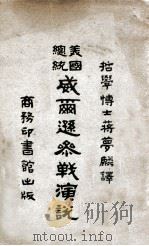 哲學博士蔣夢麟譯
美國
總統
威爾遜參戰演說
商務印書館出版